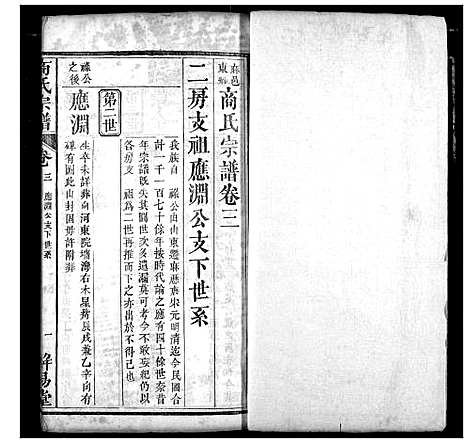 麻邑東鄉商氏宗譜卷三
二房支祖應淵公支下世系
第二世
我族自　福公由山東遷麻歷唐宋元明清迄今民國合
計一千一百七十餘年按時代論之應有四十餘世奈昔
年宗譜既失其間世次多遺漏莫可考今不敢妄紀仍以
各房支　福為二世再推而下之亦出於不得已也
福公之後
應淵
生卒未詳葬白河東院墻灣右木星葬辰戌兼乙辛向有
碑有圖此山封固毋許附葬
商氏宗譜
卷三　應淵公支下世系
一